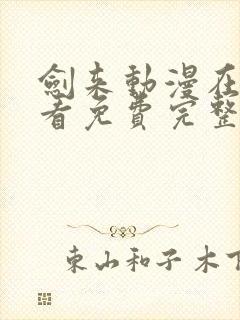 劍来動漫在
看免費完整
東山和子木下